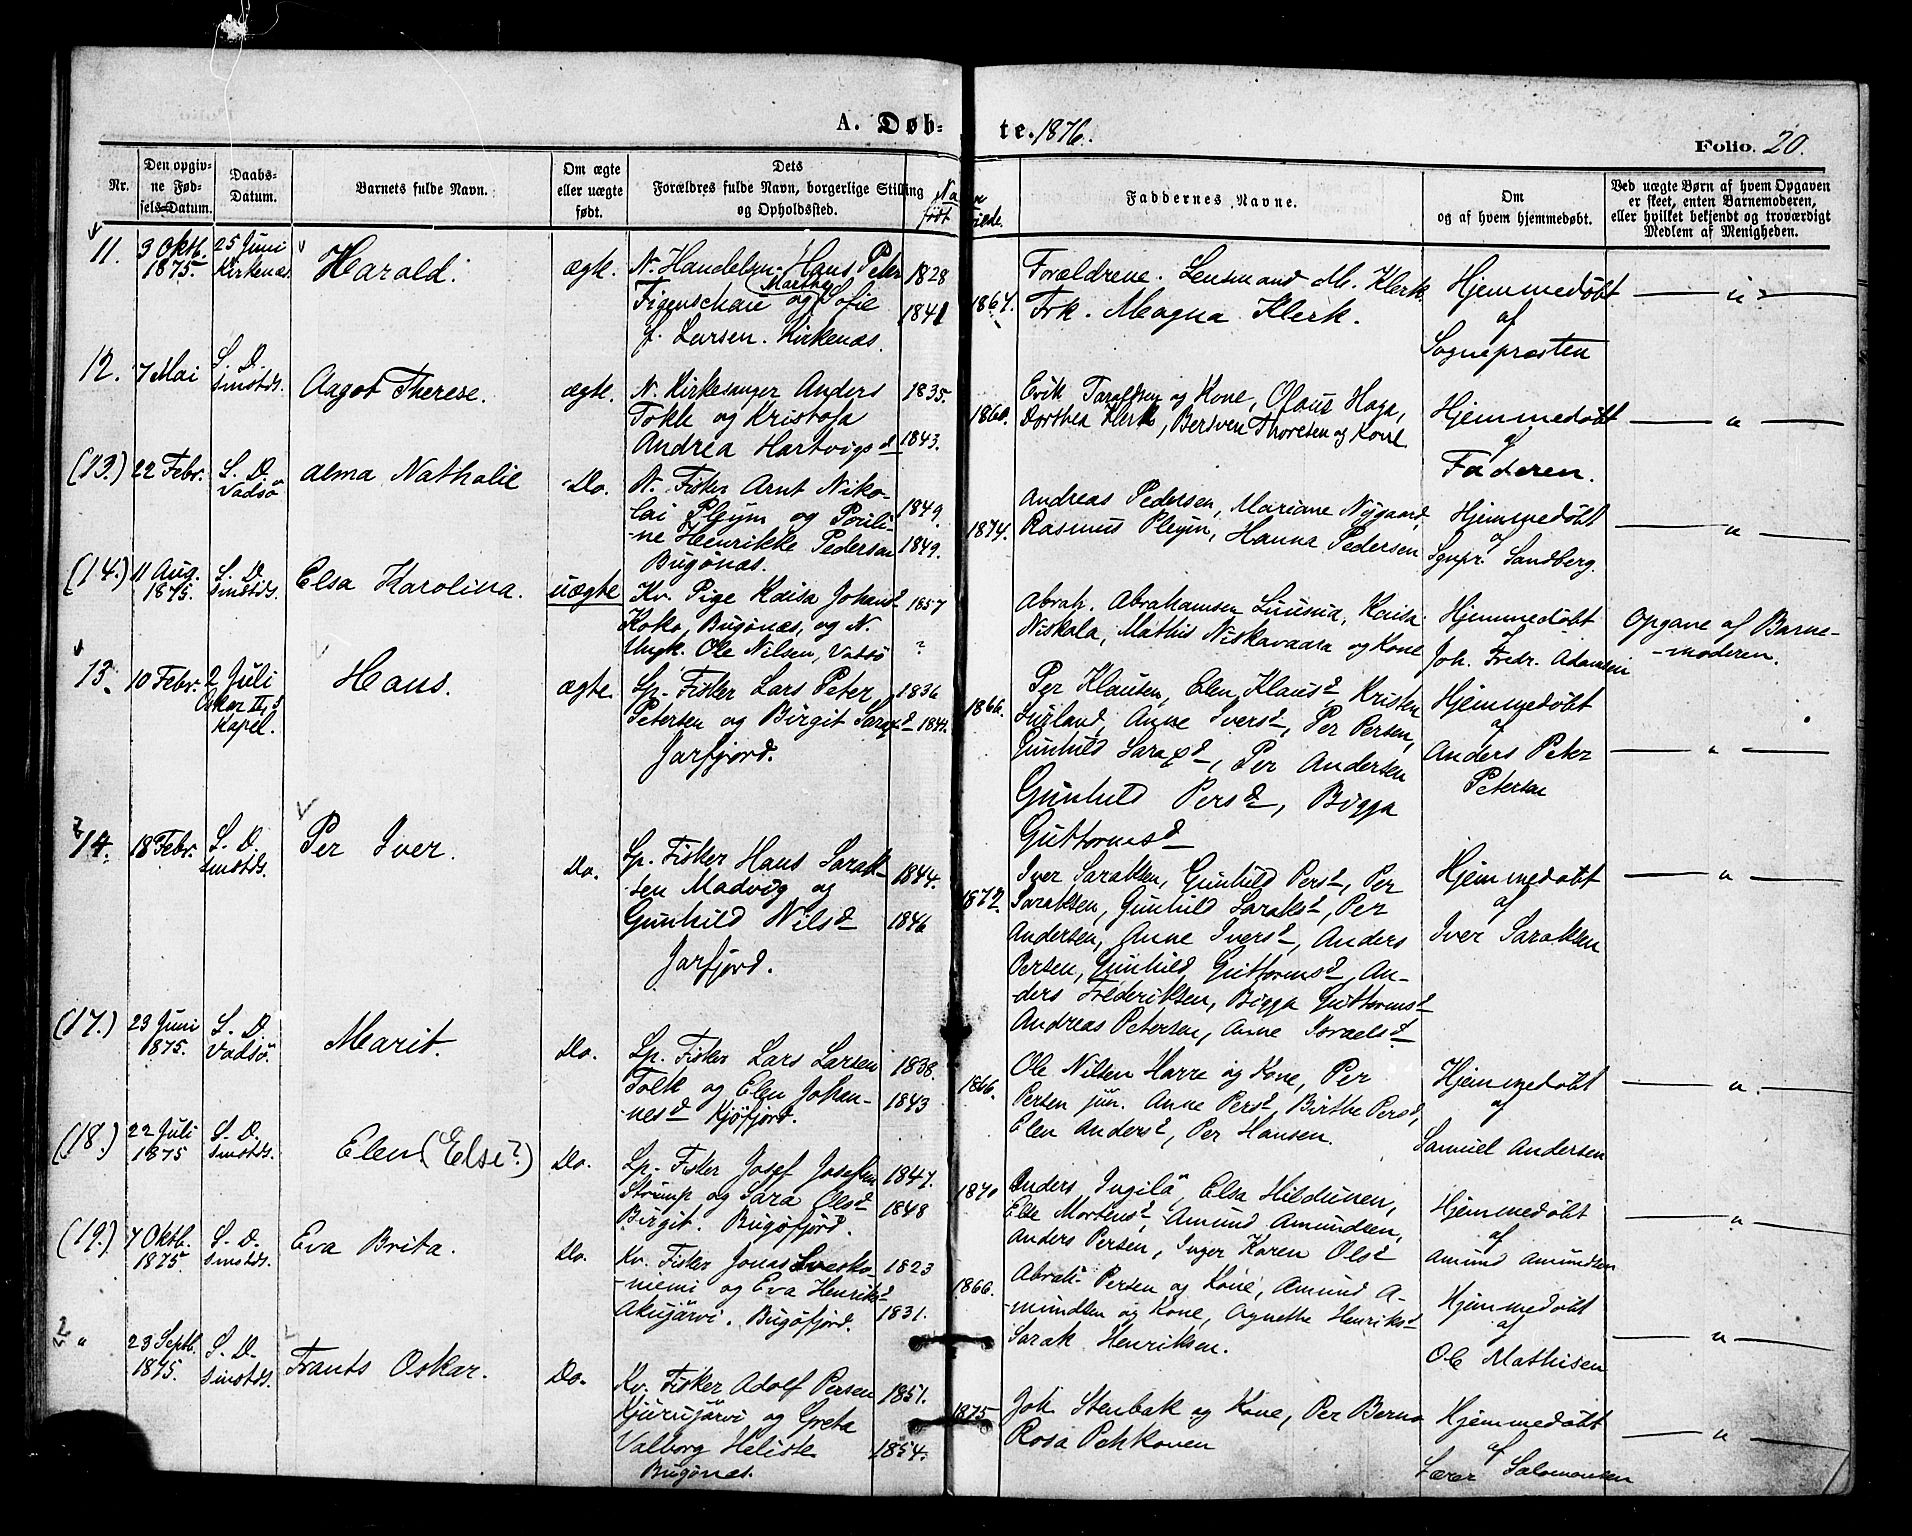 A. Døb-
te. 1876.
Folio. 20.
Nr.
Den opgiv-
ne Fød-
sels-Datum.
Daabs-
Datum.
Barnets fulde Navn.
Om ægte
eller uægte
født.
Dets
Forældres fulde Navn, borgerlige Stilling
og Opholdssted.
født
Faddernes Navne.
Om
og af hvem hjemmedøbt.
Ved uægte Børn af hvem Opgaven
er skeet, enten Barnemoderen,
eller hvilket bekjendt og troværdigt
Medlem af Menigheden.
11.
3 Oktb.
1875.
25 Juni
Kirkenæs.
Harald.
ægte.
N. Handelsm. Hans Peter
Figenschau og (Marthe) Sofie
f. Larsen. Kirkenæs.
1828
1841
1864.
Forældrene. Lensmand M. Klerk
Frk. Magna Klerk.
Hjemmedøbt
af
Sognepræsten
12.
7 Mai
S. D.
smstds.
Aagot Therese.
ægte.
N. Kirkesanger Anders
Tokle og Kristofa
Andrea Hartvigsd
1835.
1843.
1860.
Erik Taraldsen og Kone, Olaus Haga,
Dorthea Klerk, Bersven Thoresen og Kone
Hjemmedøbt
af
Faderen.
(13.)
22 Febr.
S. D.
Vadsö
Alma Nathalie
Do.
N. Fisker Arnt Niko-
lai Pleym og Pauli-
-ne Henrikke Pedersen
Bugönæs.
1849.
1849.
1874.
Andreas Pedersen, Mariane Nygaard,
Rasmus Pleym, Hanna Pedersen
Hjemmedøbt
af
Sgnpr. Sandberg.
(14.)
11 Aug.
1875.
S. D.
smstds.
Elsa Karolina.
uægte
Kv. Pige Kaisa Johansd
Koko, Bugönæs, og N.
Ungk. Ole Nilsen, Vadsö
1857
?
Abrah. Abrahamsen Luusua, Kaisa
Niskala, Mathis Niskavaara og Kone
Hjemmedøbt
af
Joh. Fredr. Adamsen
Opgave af Barne-
-moderen.
13.
10 Febr.
2 Juli
Oskar II,s
Kapel.
Hans.
ægte.
Lp. Fisker Lars Peter
Petersen og Birgit Saraxd
Jarfjord.
1836
1866.
Per Klausen, Elen Klausd, Kristen
Anne Iversd, Per Persen,
Gunhild Saraxd, Per Andersen
Gunhild Persd, Bigga
Guttormsd
Hjemmedøbt
af
Anders Peter
Petersen
14.
18 Febr.
S. D.
smstds.
Per Iver.
Do.
Lp. Fisker Hans Sarak-
-sen Madvig og
Gunhild Nilsd
Jarfjord.
1844.
1846
1872.
Iver Saraksen, Gunhild Persd, Per
Saraksen, Gunhild Saraksd, Per
Andersen, Anne Iversd, Anders
Persen, Gunhild Guttormsd, An-
-ders Frederiksen, Bigga Guttormsd
Andreas Petersen, Anne Israelsd
Hjemmedøbt
af
Iver Saraksen
(17.)
23 Juni
1875.
S. D.
Vadsö.
Marit.
Do.
Lp. Fisker Lars Larsen
Tolk og Elen Johan-
-nesd Kjöfjord.
1838.
1843
1866.
Ole Nilsen Harre og Kone, Per
Persen jun. Anne Persd, Birthe Persd,
Elen Andersd, Per Hansen.
Hjemmedøbt
af
Samuel Andersen
(18.)
22 Juli
1875
S. D.
smstds.
Elen (Else?)
Do.
Lp. Fisker Josef Josefsen
Strump og Sara Olsd
Birgit. Bugöfjord.
1847.
1848
1870
Anders Ingilä, Elsa Hildunen,
Else Mortensd, Amund Amundsen,
Anders Persen, Inger Karen Olsd
Hjemmedøbt
af
Amund Amundsen
(19.)
7 Oktb.
1875.
S. D.
smstds.
Eva Brita.
Do.
Kv. Fisker Jonas
-niemi og Eva Henriksd
Akujärvi. Bugöfjord.
1823
1831.
1866.
Abrah. Persen og Kone, Amund A-
-mundsen og Kone, Agnethe Henriksd
Sarak Henriksen.
Hjemmedøbt
af
Ole Mathisen
23 Septb.
1875.
S. D.
smstds.
Frants Oskar.
Do.
Kv. Fisker Adolf Persen
Kjurujärvi og Greta
Valborg Heliste
Bugönæs.
1851.
1854.
1875
Joh. Stenbak og Kone, Per Berno
Rosa Pehkonen
Hjemmedøbt
af
Lærer Salomonsen